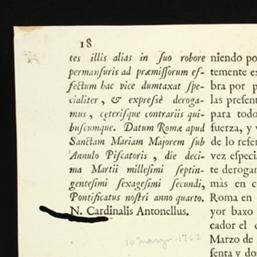 18
tes illis alias in suo robore
permansuris ad præmissorum ef-
fectum hac vice dumtaxat spe-
cialiter, & expresè deroga-
mus, cæterisque contrariis qui-
buscumque. Datum Romæ apud
Sanctam Mariam Majorem sub
Annulo Piscatoris, die deci-
ma Martii millesimi septin-
gentesimi sexagesimi secundi,
Pontificatus nostri anno quarto.
N. Cardinalis Antonellus.
10 marzo-1762
niendo po
temente ex
bra por p
las present
para todo
fuerza, y v
de lo refer
vez especia
te derogam
más en c
Roma en
yor baxo
cador el c
Marzo de